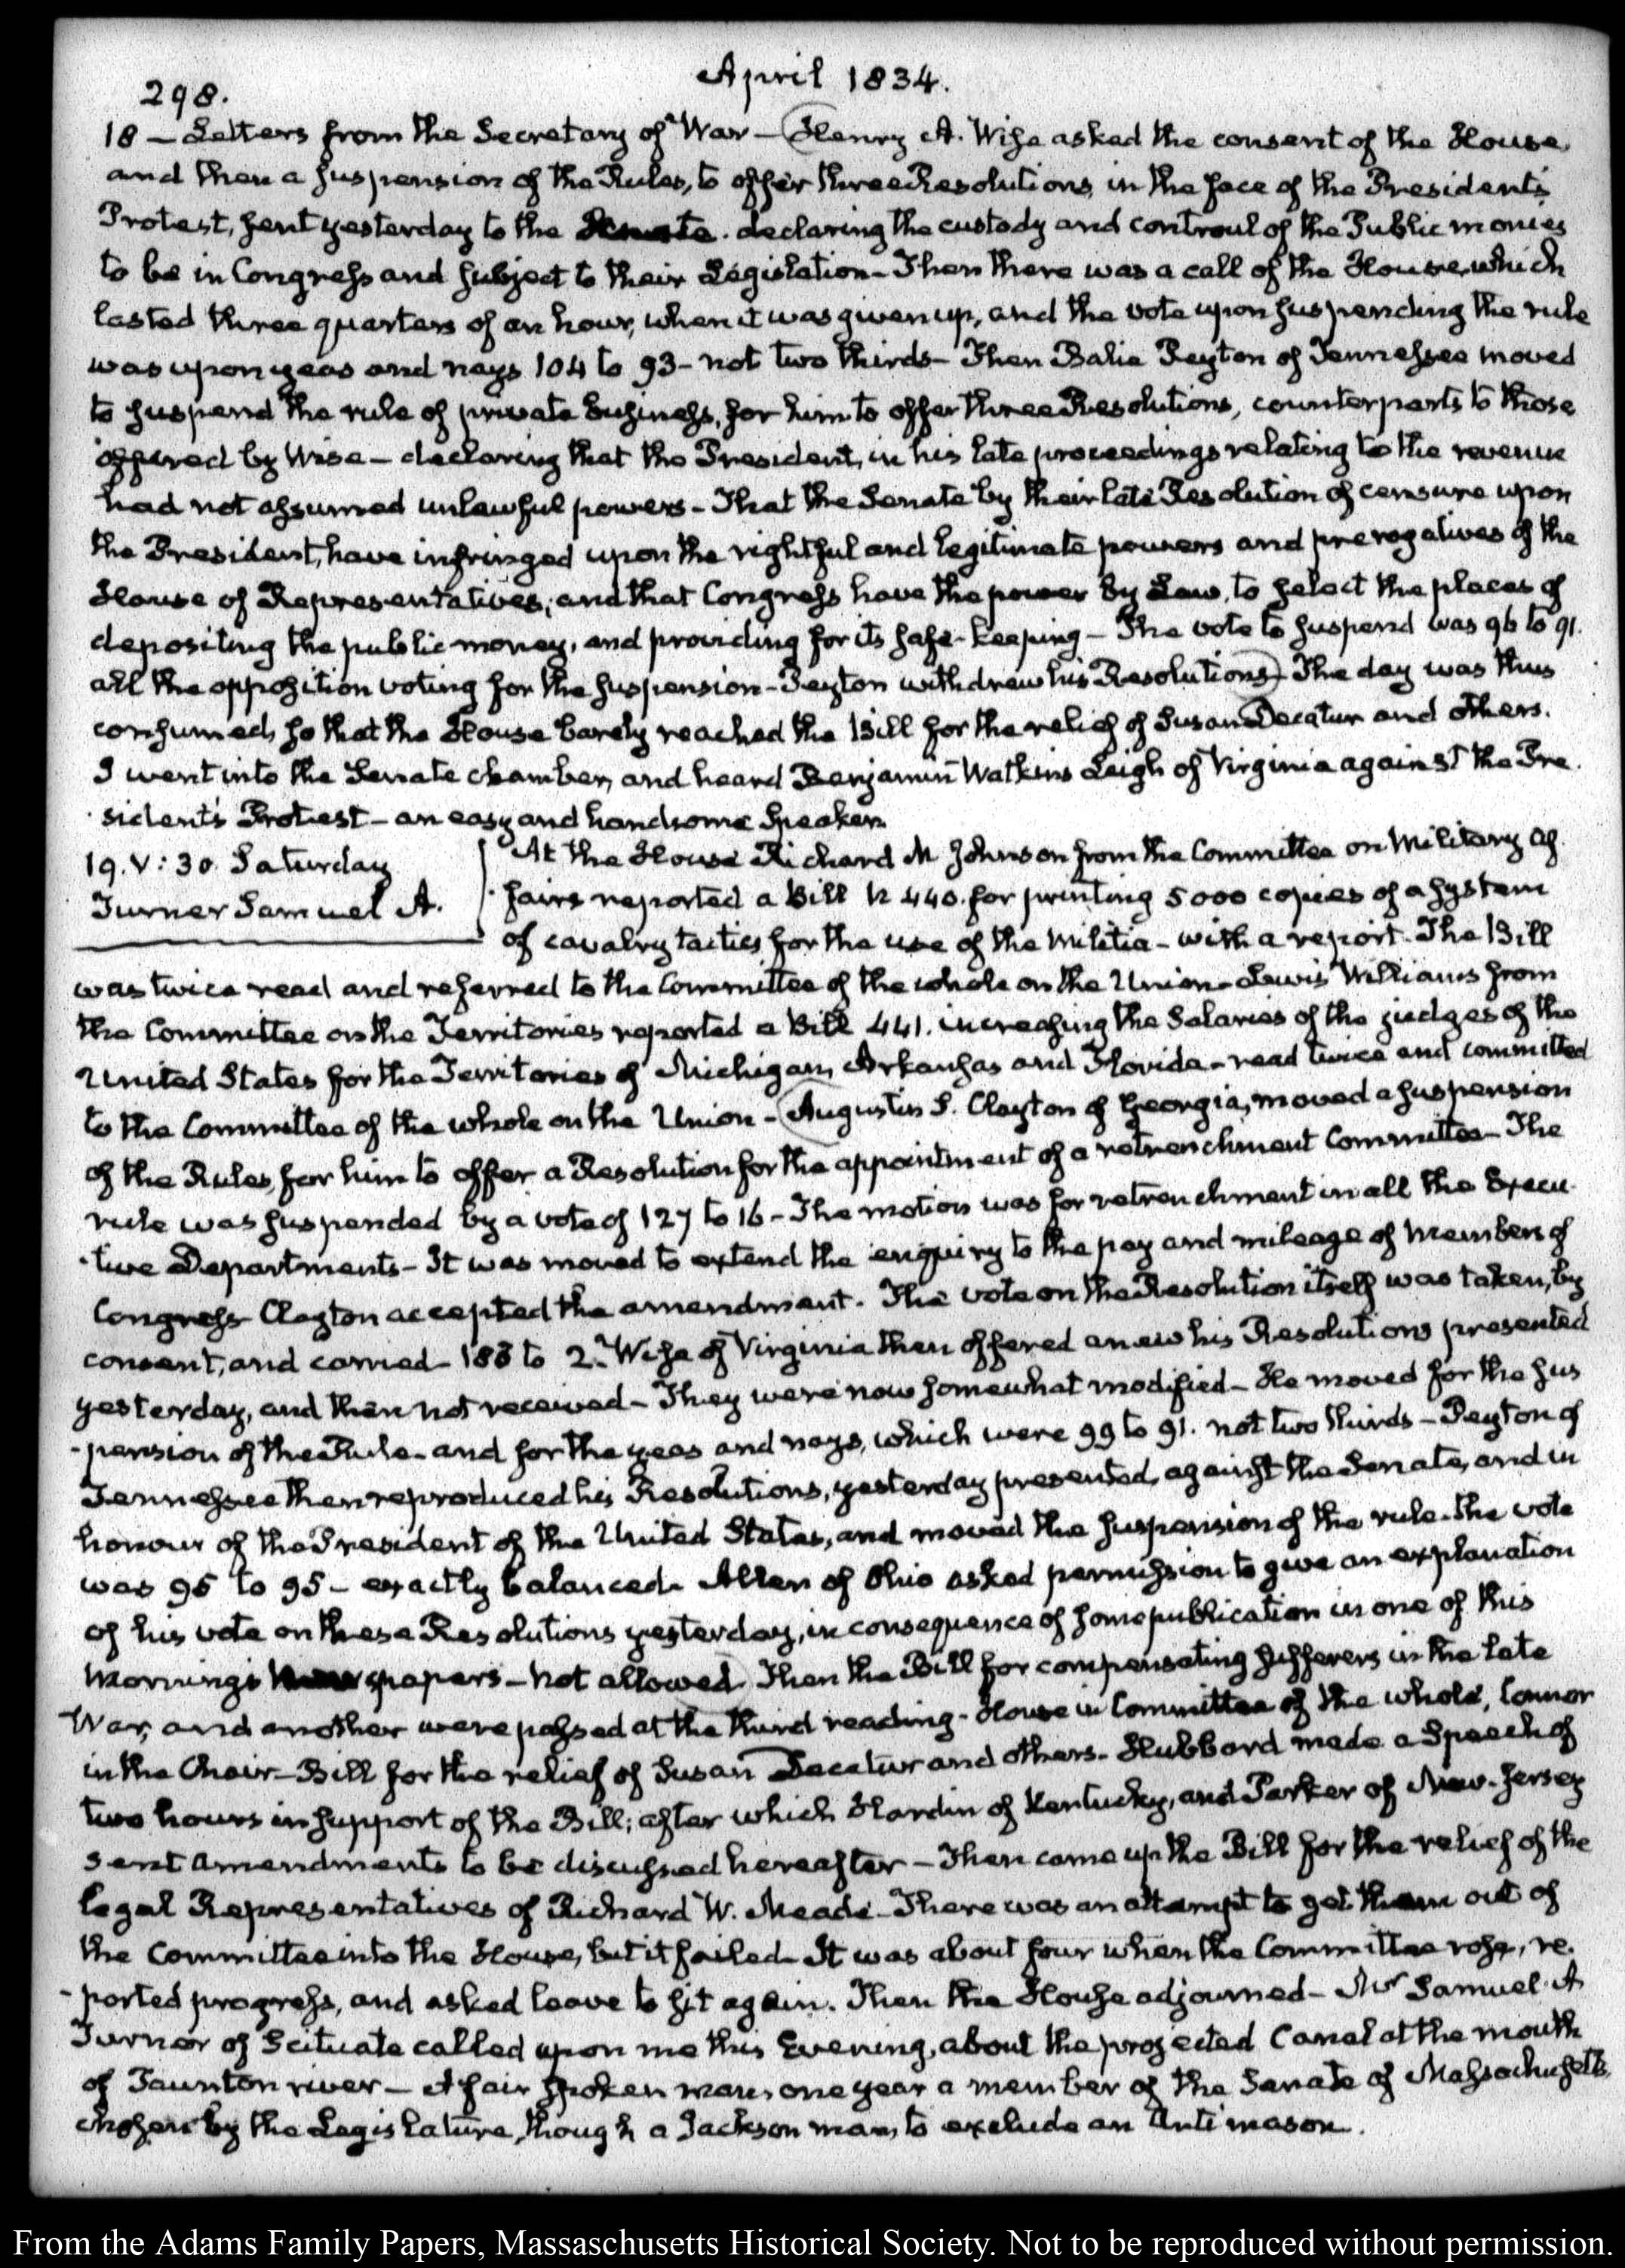 April 1834.
298.
18 — Letters from the Secretary of War — Henry A. Wise asked the consent of the House,
and then a suspension of the Rules, to offer three Resolutions, in the face of the President's
Protest, sent yesterday to the Senate. declaring the custody and controul of the Public monies
to be in Congress and subject to their Legislation — Then there was a call of the House, which
lasted three quarters of an hour, when it was given up, and the vote upon suspending the rule
was upon yeas and nays 104 to 93 — not two thirds — Then Balie Peyton of Tennessee moved
to suspend the rule of private business, for him to offer three Resolutions, counterparts to those
offered by Wise — declaring that the President, in his late proceedings relating to the revenue
had not assumed unlawful powers — That the Senate by their late Resolution of censure upon
the President, have infringed upon the rightful and legitimate powers and prerogatives of the
House of Representatives; and that Congress have the power by Law, to select the places of
depositing the public money, and providing for its safe-keeping — The vote to suspend was 96 to 91.
all the opposition voting for the suspension — Peyton withdrew his Resolutions — The day was thus
consumed, so that the House barely reached the Bill for the relief of Susan Decatur and others.
I went into the Senate chamber, and heard Benjamin Watkins Leigh of Virginia against the Pre-
sident's Protest — an easy and handsome Speaker.
19. V:30. Saturday
Turner Samuel A.
At the House Richard M Johnson from the Committee on Military Af-
fairs reported a Bill N 440. for printing 5000 copies of a System
of cavalry tactics for the use of the Militia — with a report. The Bill
was twice read and referred to the Committee of the whole on the Union — Lewis Williams from
the Committee on the Territories reported a Bill 441. increasing the Salaries of the judges of the
United States for the Territories of Michigan, Arkansas and Florida — read twice and committed
to the Committee of the whole on the Union — Augustin S. Clayton of Georgia, moved a suspension
of the Rules, for him to offer a Resolution for the appointment of a retrenchment Committee — The
rule was suspended by a vote of 127 to 16 — The motion was for retrenchment in all the Execu-
tive Departments — It was moved to extend the enquiry to the pay and mileage of Members of
Congress — Clayton accepted the amendment. The vote on the Resolution itself was taken, by
consent, and carried — to 2. Wise of Virginia then offered anew his Resolutions presented
yesterday, and then not received — They were now somewhat modified — He moved for the sus-
pension of the Rule — and for the yeas and nays, which were 99 to 91. not two thirds — Peyton of
Tennessee then reproduced his Resolutions, yesterday presented, against the Senate, and in
honour of the President of the United States, and moved the suspension of the rule. the vote
was 95 to 95 — exactly balanced. Allen of Ohio asked permission to give an explanation
of his vote on these Resolutions yesterday, in consequence of some publication in one of this
morning's newspapers — not allowed. Then the Bill for compensating sufferers in the late
War, and another were passed at the third reading — House in Committee of the whole, Connor
in the Chair — Bill for the relief of Susan Decatur and others. Hubbard made a Speech of
two hours in support of the Bill; after which Hardin of Kentucky, and Parker of New-Jersey
sent amendments to be discussed hereafter — Then came up the Bill for the relief of the
legal Representatives of Richard W. Meade — There was an attempt to get them out of
the Committee into the House, but it failed — It was about four when the Committee rose, re-
ported progress, and asked leave to sit again. Then the House adjourned — Mr Samuel A
Turner of Scituate called upon me this Evening, about the projected Canal at the mouth
of Taunton river — A fair spoken man, one year a member of the Senate of Massachusetts,
chosen by the Legislature, though a Jackson man, to exclude an Antimason.
From the Adams Family Papers, Massaschusetts Historical Society. Not to be reproduced without permission.